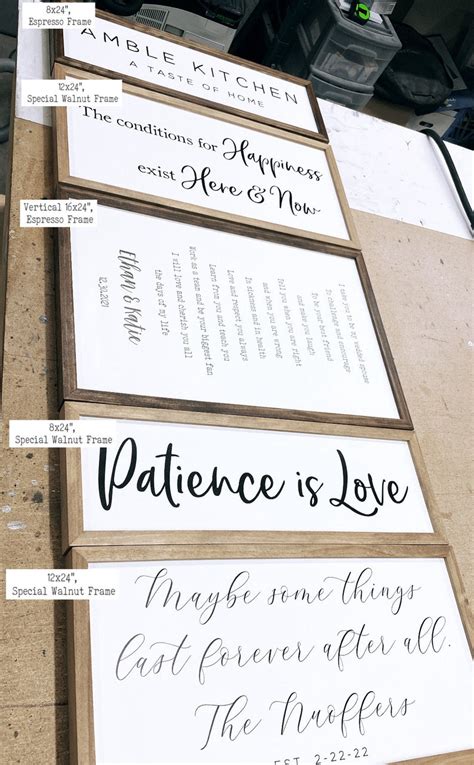 8x24",
Espresso Frame
AMBLE KITCHEN
A TASTE OF HOME
12x24",
Special Walnut Frame
The conditions for Happiness
exist Here & Now
Vertical 16x24",
Espresso Frame
I take you to be my wedded spouse
To challenge and encourage
To be your best friend
and make you laugh
Tell you when you are right
and when you are wrong
In sickness and in health
Love and respect you always
Learn from you and teach you
Work as a team and be your biggest fan
I will love and cherish you all
the days of my life
Ethan & Katie
8x24",
Special Walnut Frame
Patience is Love
12x24",
Special Walnut Frame
Maybe some things
last forever after all.
The Nuoffers
EST. 2-22-22